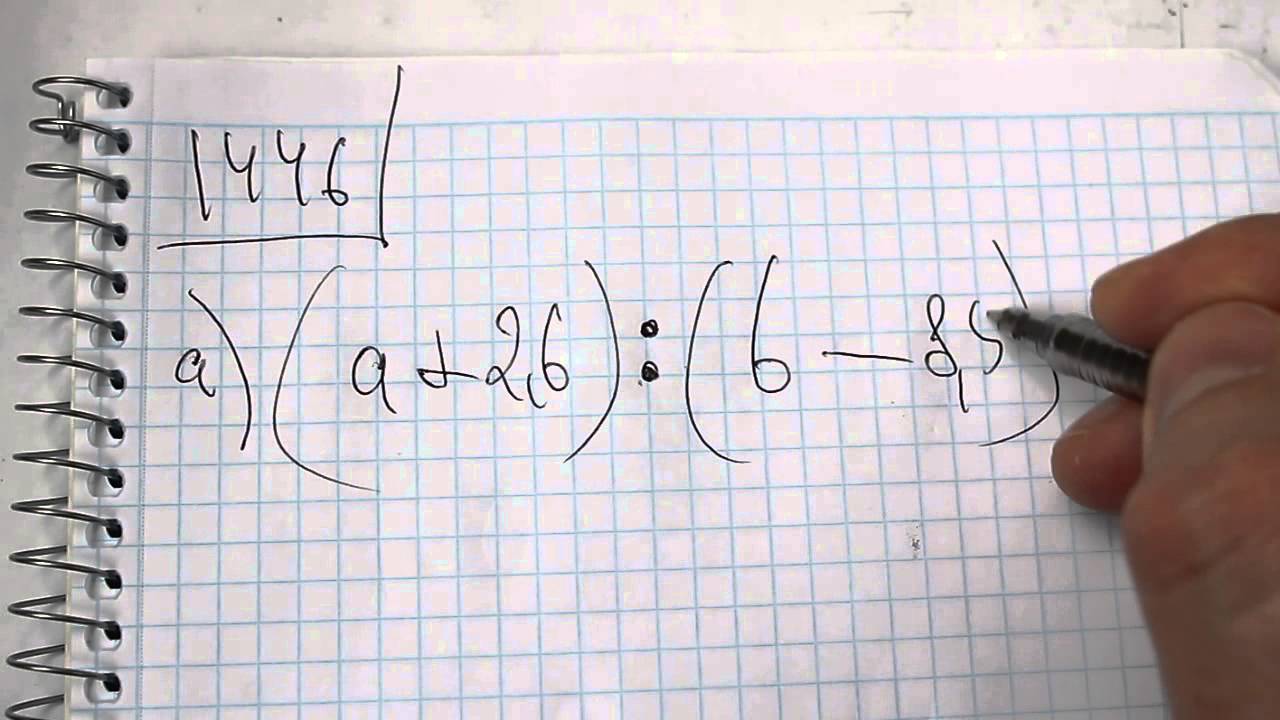 1446
а) (а + 2,6) : (б - 8,5)